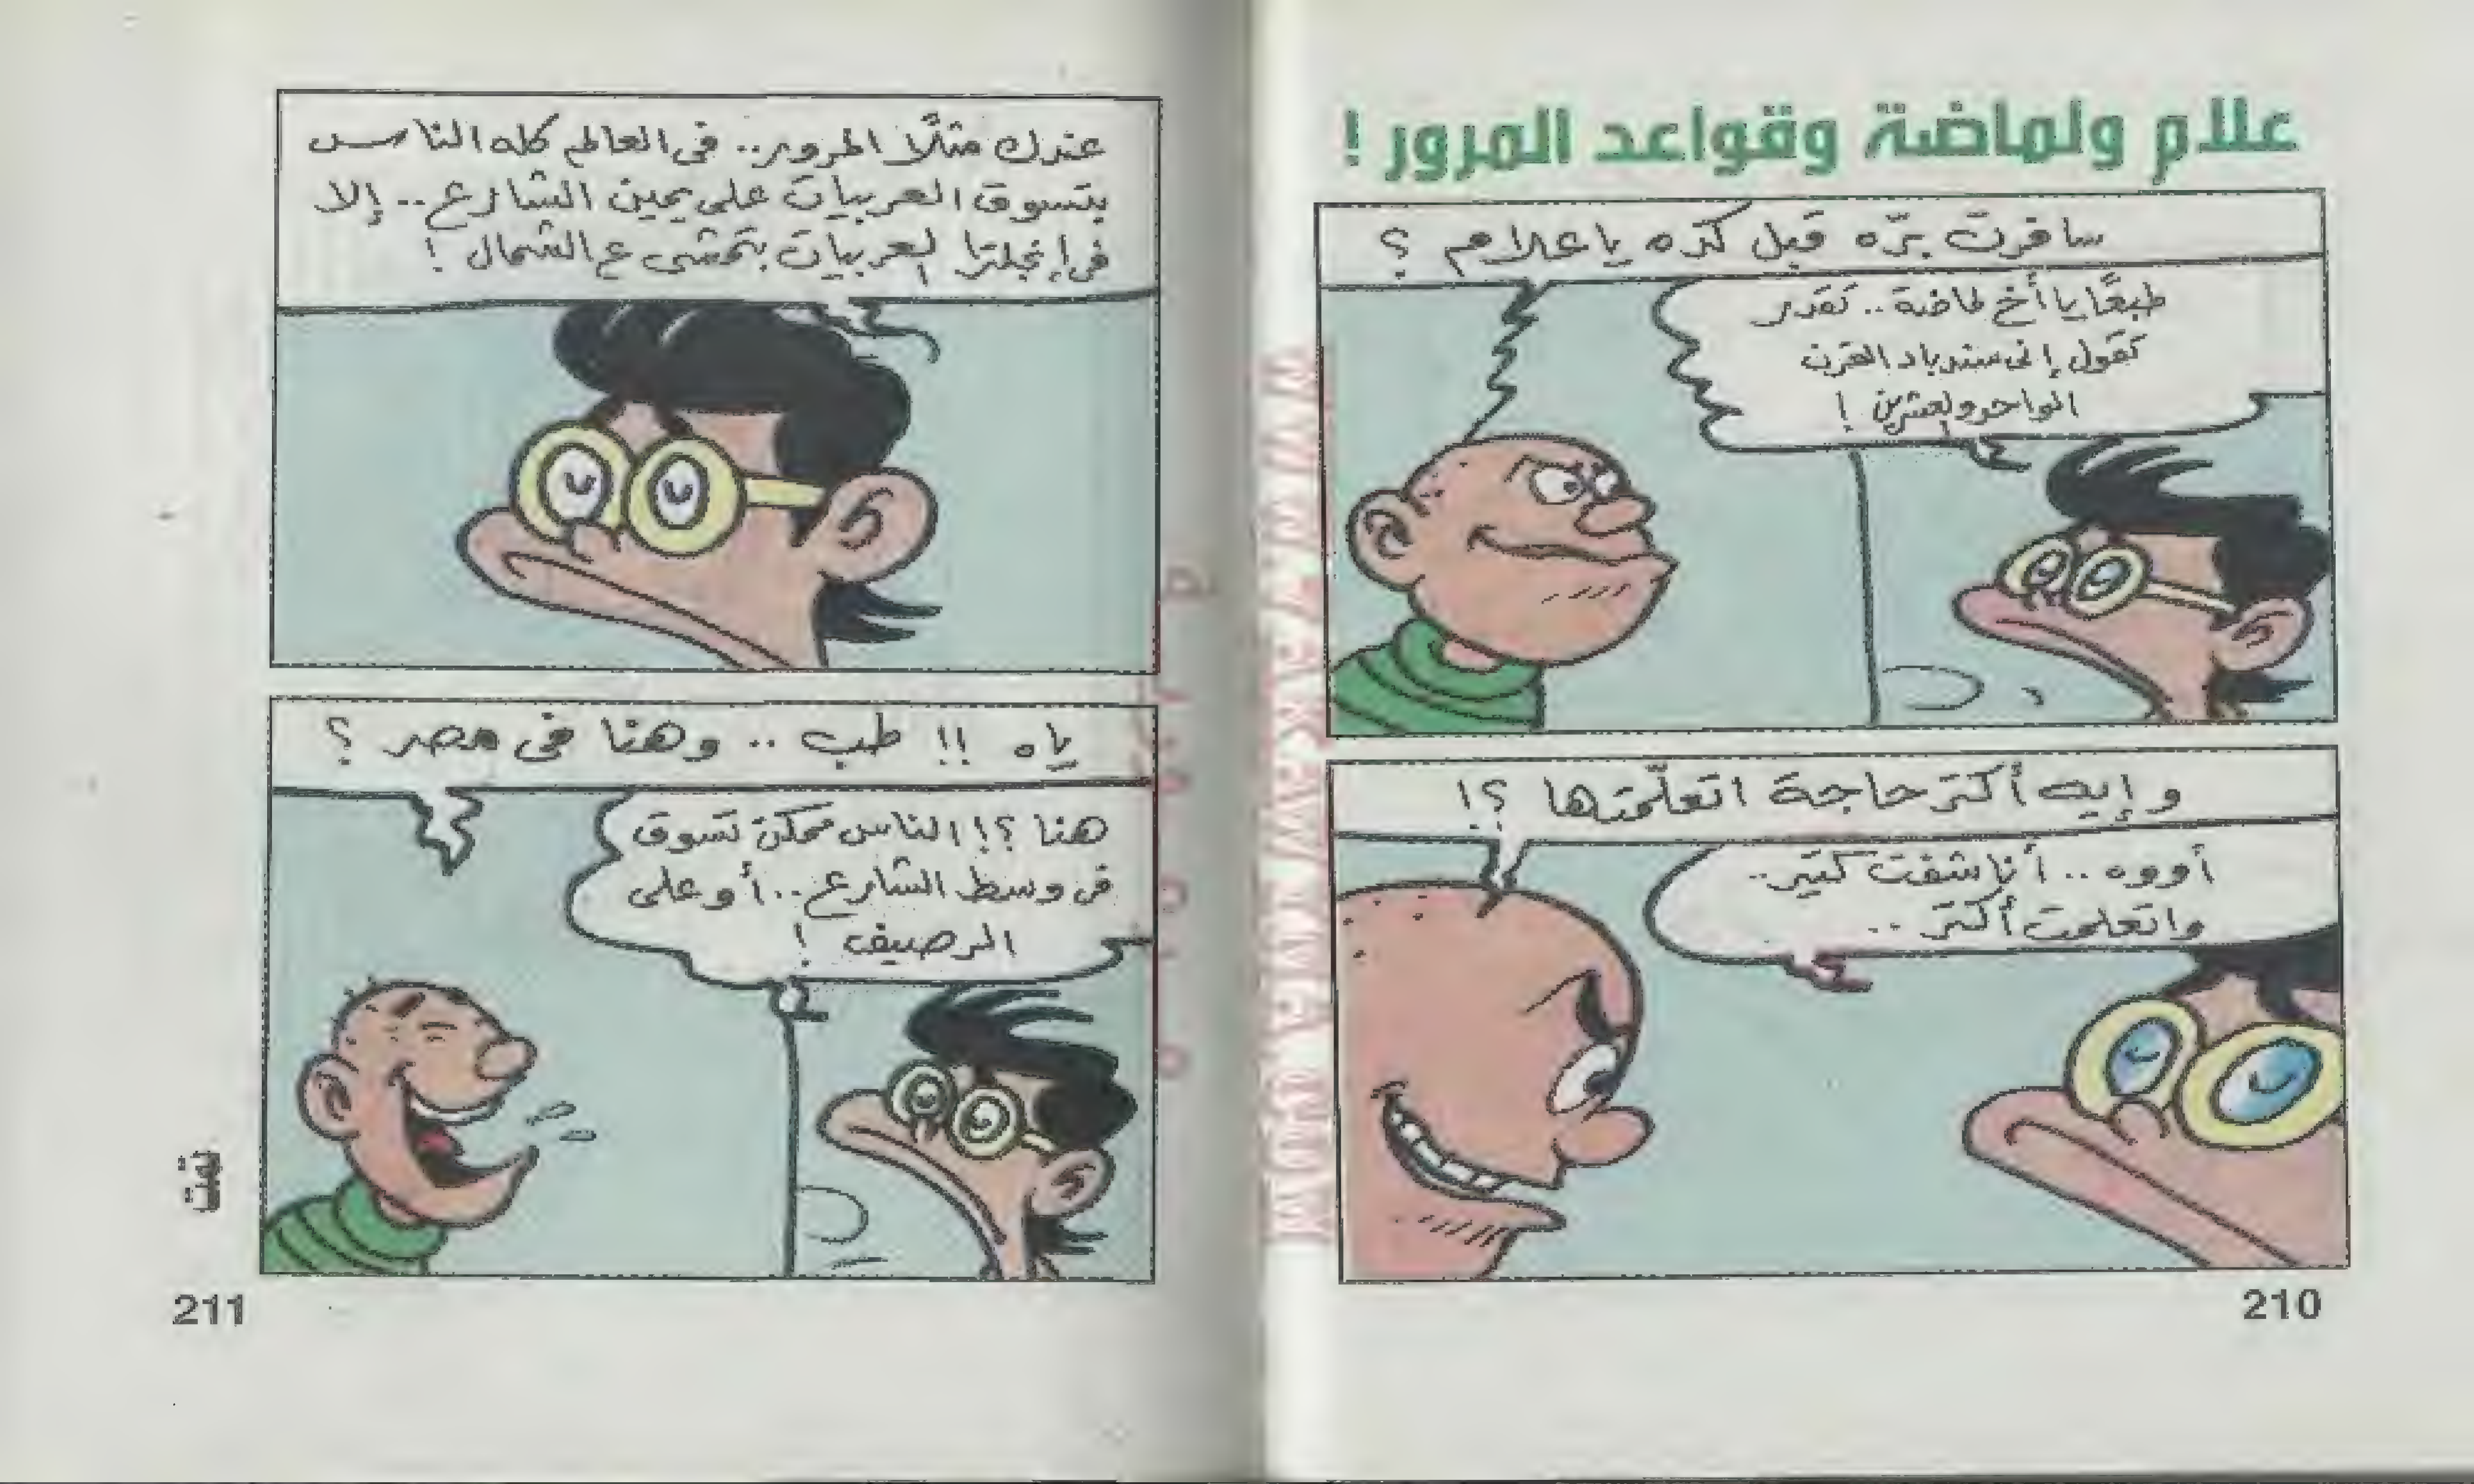 علام ولماضة وقواعد المرور !
سافرت برّه قبل كده يا علام ؟
طبعًا يا أخ لماضة .. تقدر
تقول إنى سندباد القرن
الواحد والعشرين !
وإيه أكتر حاجة اتعلّمتها ؟!
أووه .. أنا شفت كتير ..
واتعلمت أكتر ..
210
عندك مثلًا المرور .. فى العالم كله الناس
بتسوق العربيات على يمين الشارع .. إلا
فى إنجلترا العربيات بتمشى ع الشمال !
ياه !! طب .. وهنا فى مصر ؟
هنا ؟! الناس ممكن تسوق
فى وسط الشارع .. أو على
الرصيف !
تمت
211